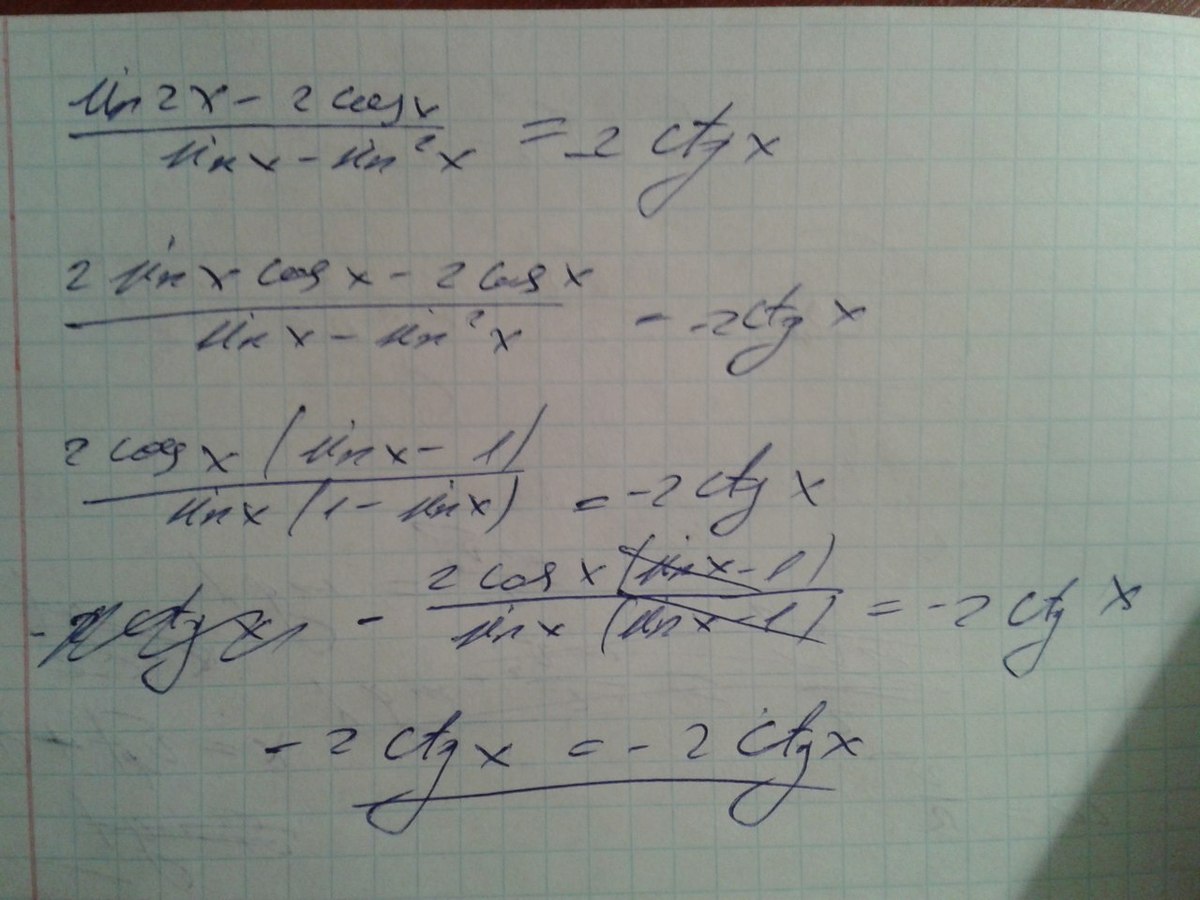 (sin 2x - 2 cos x)/(sin x - sin²x) = -2 ctg x
(2 sin x cos x - 2 cos x)/(sin x - sin²x) = -2 ctg x
(2 cos x (sin x - 1))/(sin x (1 - sin x)) = -2 ctg x
- (2 cos x (sin x - 1))/(sin x (sin x - 1)) = -2 ctg x
-2 ctg x = -2 ctg x